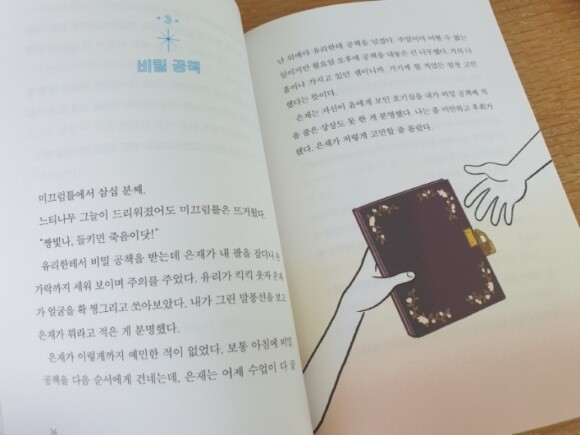 3
비밀 공책
미끄럼틀에서 삼십 분째.
느티나무 그늘이 드리워졌어도 미끄럼틀은 뜨거웠다.
"짱빛나, 들키면 죽음이닷!"
유리한테서 비밀 공책을 받는데 은재가 내 팔을 잡더니
가락까지 세워 보이며 주의를 주었다. 유리가 킥킥 웃자 은재
가 얼굴을 확 찡그리고 쏘아보았다. 내가 그린 말풍선을 보고
은재가 뭐라고 적은 게 분명했다.
은재가 이렇게까지 예민한 적이 없었다. 보통 아침에 비밀
공책을 다음 순서에게 건네는데, 은재는 어제 수업이 다 끝
난 뒤에야 유리한테 공책을 넘겼다. 주말이야 어쩔 수 없는
일이지만 월요일 오후에 공책을 내놓은 건 너무했다. 거의 나
흘이나 가지고 있던 셈이니까. 거기에 뭘 적었는 고민
했다는 뜻이다.
은재는 자신이 유에게 보인 호기심을 내가 비밀 공책에 적
을 줄은 상상도 못 한 게 분명했다. 나는 좀 미안하고 후회가
했다. 은재가 저렇게 고민할 줄 몰랐다.